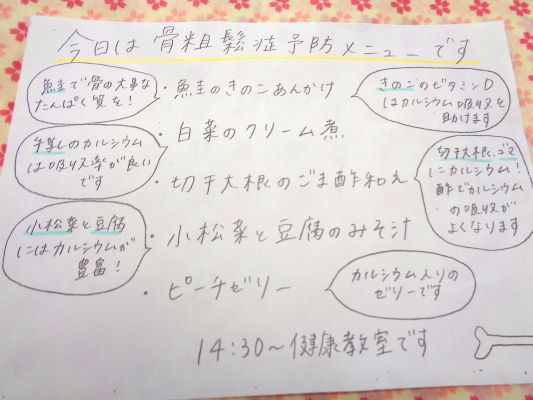 今日は 骨粗鬆症予防メニューです
鮭で骨の大事な
たんぱく質を!
・鮭のきのこあんかけ
きのこのビタミンD
はカルシウム吸収を
助けます
・白菜のクリーム煮
牛乳のカルシウム
は吸収率が良い
です
・切干大根のごま酢和え
切干大根、ゴマ
にカルシウム!
酢でカルシウム
の吸収が
よくなります
・小松菜と豆腐のみそ汁
小松菜と豆腐
にはカルシウムが
豊富!
・ピーチゼリー
カルシウム入りの
ゼリーです
14:30〜健康教室です